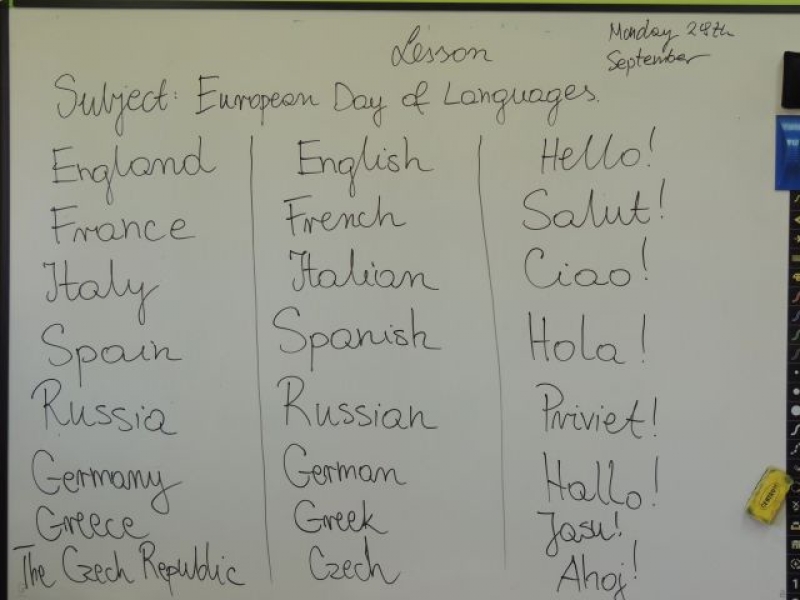 Lesson
Monday 28th
September
Subject: European Day of Languages.
England English Hello!
France French Salut!
Italy Italian Ciao!
Spain Spanish Hola!
Russia Russian Priviet!
Germany German Hallo!
Greece Greek Jasu!
The Czech Republic Czech Ahoj!